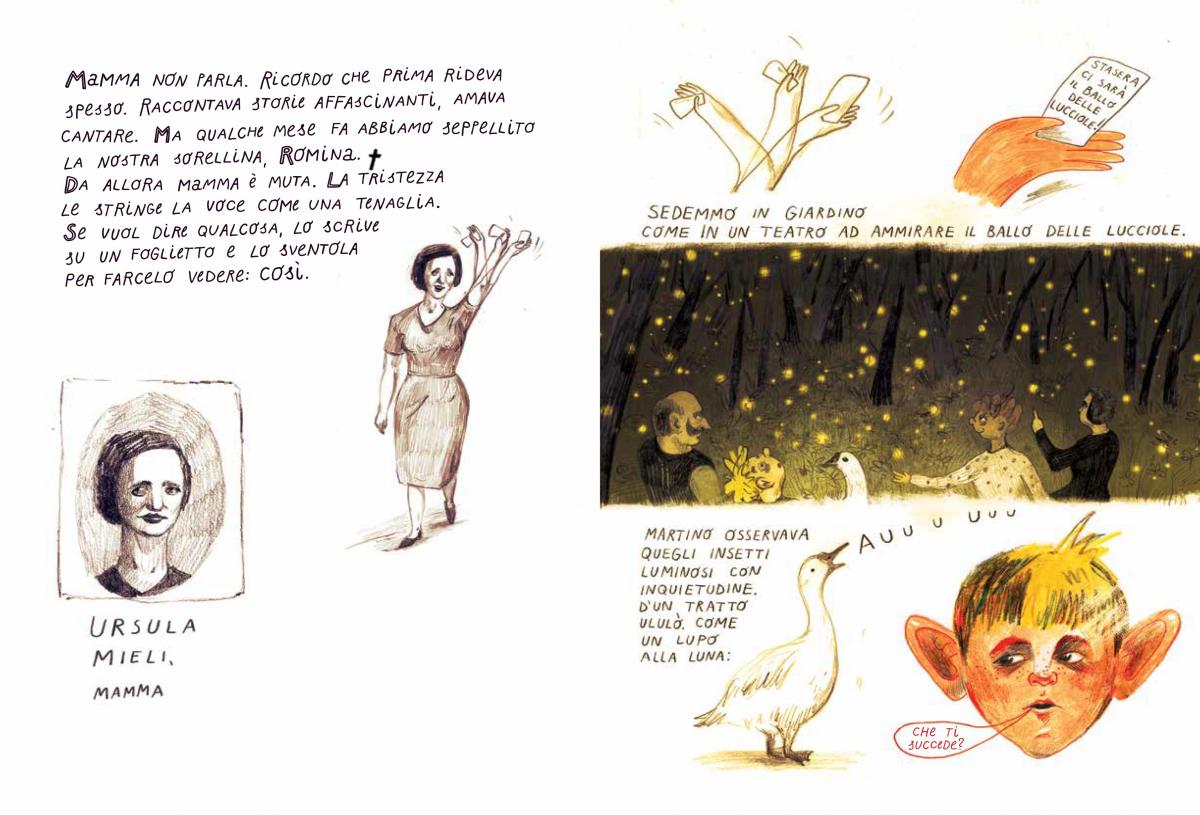 MAMMA NON PARLA. RICORDO CHE PRIMA RIDEVA
SPESSO. RACCONTAVA STORIE AFFASCINANTI, AMAVA
CANTARE. MA QUALCHE MESE FA ABBIAMO SEPPELLITO
LA NOSTRA SORELLINA, ROMINA. ✝
DA ALLORA MAMMA È MUTA. LA TRISTEZZA
LE STRINGE LA VOCE COME UNA TENAGLIA.
SE VUOL DIRE QUALCOSA, LO SCRIVE
SU UN FOGLIETTO E LO SVENTOLA
PER FARCELO VEDERE: COSÌ.
URSULA
MIELI,
MAMMA
STASERA
CI SARÀ
IL BALLO
DELLE
LUCCIOLE!
SEDEMMO IN GIARDINO
COME IN UN TEATRO AD AMMIRARE IL BALLO DELLE LUCCIOLE.
MARTINO OSSERVAVA
QUEGLI INSETTI
LUMINOSI CON
INQUIETUDINE.
D'UN TRATTO
ULULÒ. COME
UN LUPO
ALLA LUNA:
AUU U UUU
CHE TI
SUCCEDE?